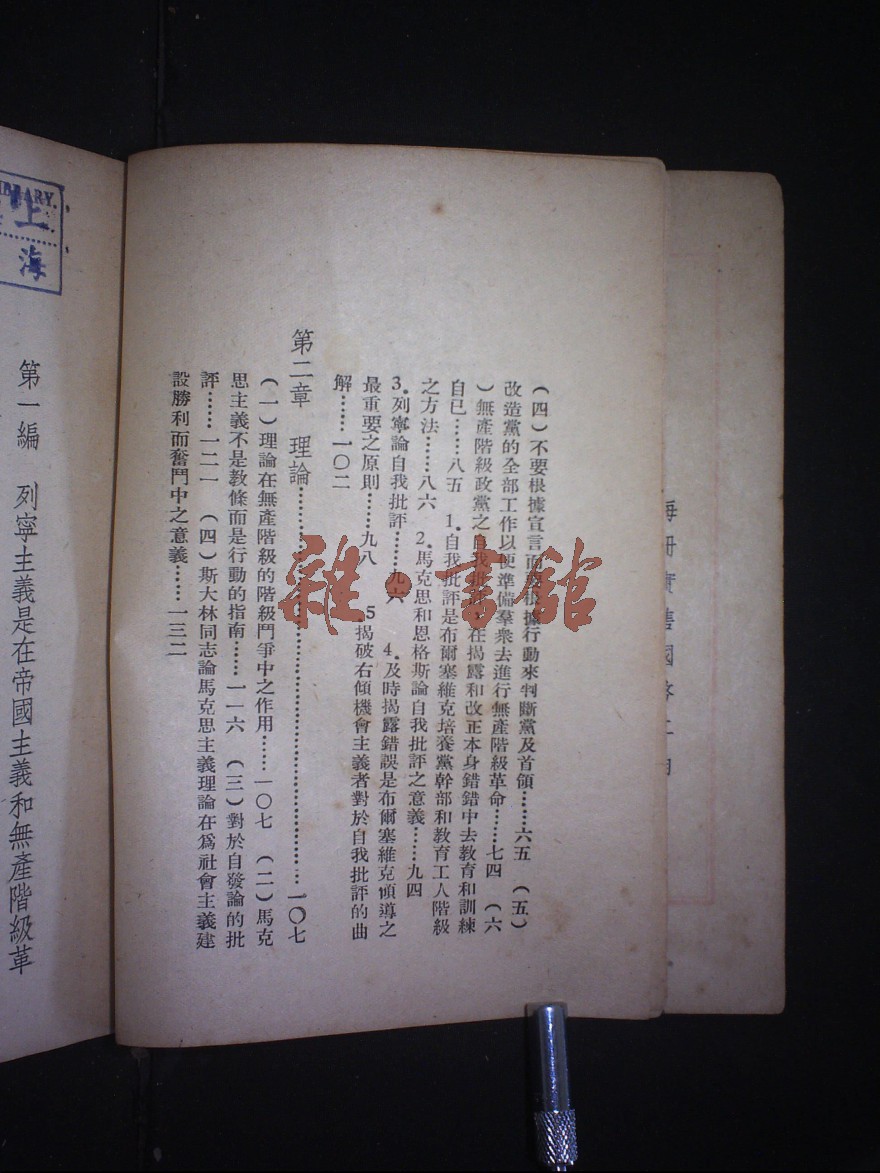 每冊實售國幣
(四)不要根據宣言而要根據行動來判斷黨及首領……六五 (五)
改造黨的全部工作以便準備羣衆去進行無產階級革命……七四 (六
)無產階級政黨之自我批評在揭露和改正本身錯錯中去教育和訓練
自已……八五 1.自我批評是布爾塞維克培養黨幹部和教育工人階級
之方法……八六 2.馬克思和恩格斯論自我批評之意義……九四
3.列寧論自我批評……九六 4.及時揭露錯誤是布爾塞維克傾導之
最重要之原則……九八 5.揭破右傾機會主義者對於自我批評的曲
解……一〇二
第二章 理論……一〇七
(一)理論在無產階級的階級鬥爭中之作用……一〇七 (二)馬克
思主義不是教條而是行動的指南……一一六 (三)對於自發論的批
評……一二一 (四)斯大林同志論馬克思主義理論在爲社會主義建
設勝利而奮鬥中之意義……一三二
第一編 列寧主義是在帝國主義和無產階級革
上
海
雜·書館